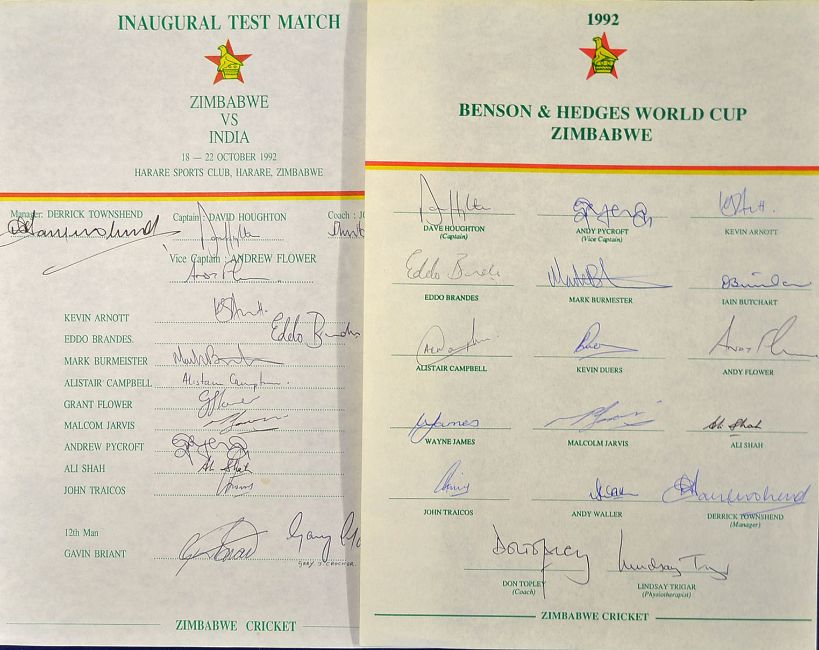 INAUGURAL TEST MATCH
ZIMBABWE
VS
INDIA
18 — 22 OCTOBER 1992
HARARE SPORTS CLUB, HARARE, ZIMBABWE
Manager: DERRICK TOWNSHEND
Captain : DAVID HOUGHTON
Coach :
Vice Captain : ANDREW FLOWER
KEVIN ARNOTT
EDDO BRANDES.
Eddo Brandes
MARK BURMEISTER
ALISTAIR CAMPBELL
Alistair Campbell
GRANT FLOWER
MALCOM JARVIS
ANDREW PYCROFT
ALI SHAH
Ali Shah
JOHN TRAICOS
12th Man
GAVIN BRIANT
Gary
GARY J. CROCKER.
ZIMBABWE CRICKET
1992
BENSON & HEDGES WORLD CUP
ZIMBABWE
DAVE HOUGHTON
(Captain)
ANDY PYCROFT
(Vice Captain)
KEVIN ARNOTT
Eddo Brandes
EDDO BRANDES
MARK BURMESTER
IAIN BUTCHART
ALISTAIR CAMPBELL
KEVIN DUERS
ANDY FLOWER
WJames
Ali Shah
WAYNE JAMES
MALCOLM JARVIS
ALI SHAH
JOHN TRAICOS
ANDY WALLER
DERRICK TOWNSHEND
(Manager)
DON TOPLEY
(Coach)
LINDSAY TRIGAR
(Physiotherapist)
ZIMBABWE CRICKET